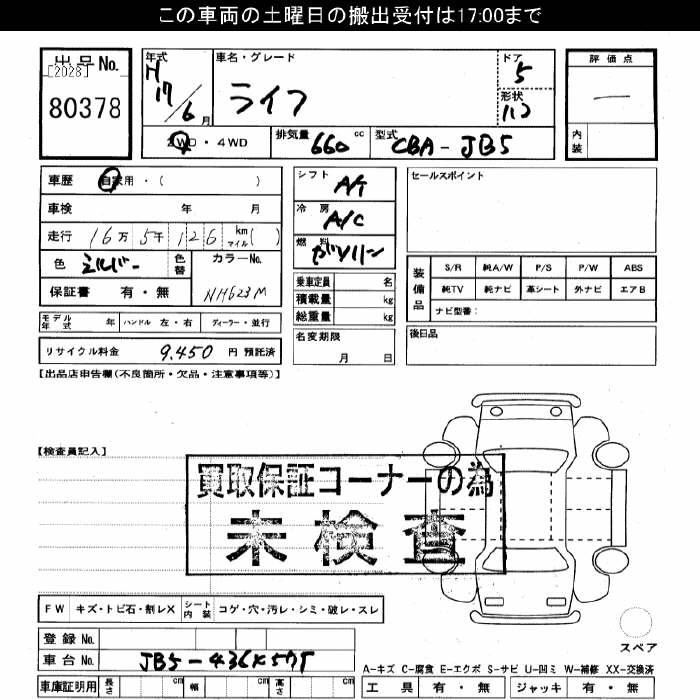 この車両の土曜日の搬出受付は17:00まで
出品No. [2028] 80378
年式 H17/6月
車名・グレード ライフ
ドア 5
形状 ハコ
評価点 一
内装
2WD・4WD
排気量 660 cc
型式 CBA-JB5
車歴 自家用・( )
車検 年 月
走行 16万5千126 km マイル( )
色 シルバー 色替
カラーNo. NH623M
保証書 有・無
モデル年式 年 ハンドル 左・右 ディーラー・並行
リサイクル料金 9,450 円 預託済
シフト A/T
冷房 A/C
燃料 ガソリン
乗車定員 名
積載量 kg
総重量 kg
名変期限 月 日
セールスポイント
装備品
S/R 純A/W P/S P/W ABS
純TV 純ナビ 革シート 外ナビ エアB
ナビ型番:
後日品
【出品店申告欄(不良箇所・欠品・注意事項等)】
【検査員記入】
買取保証コーナーの為
未検査
FW キズ・トビ石・割レX シート内装 コゲ・穴・汚レ・シミ・破レ・スレ
登録No.
車台No.
車庫証明用 長さ cm 幅 cm 高さ cm
スペア
A-キズ C-腐食 E-エクボ S-サビ U-凹ミ W-補修 XX-交換済
工具 有・無 ジャッキ 有・無